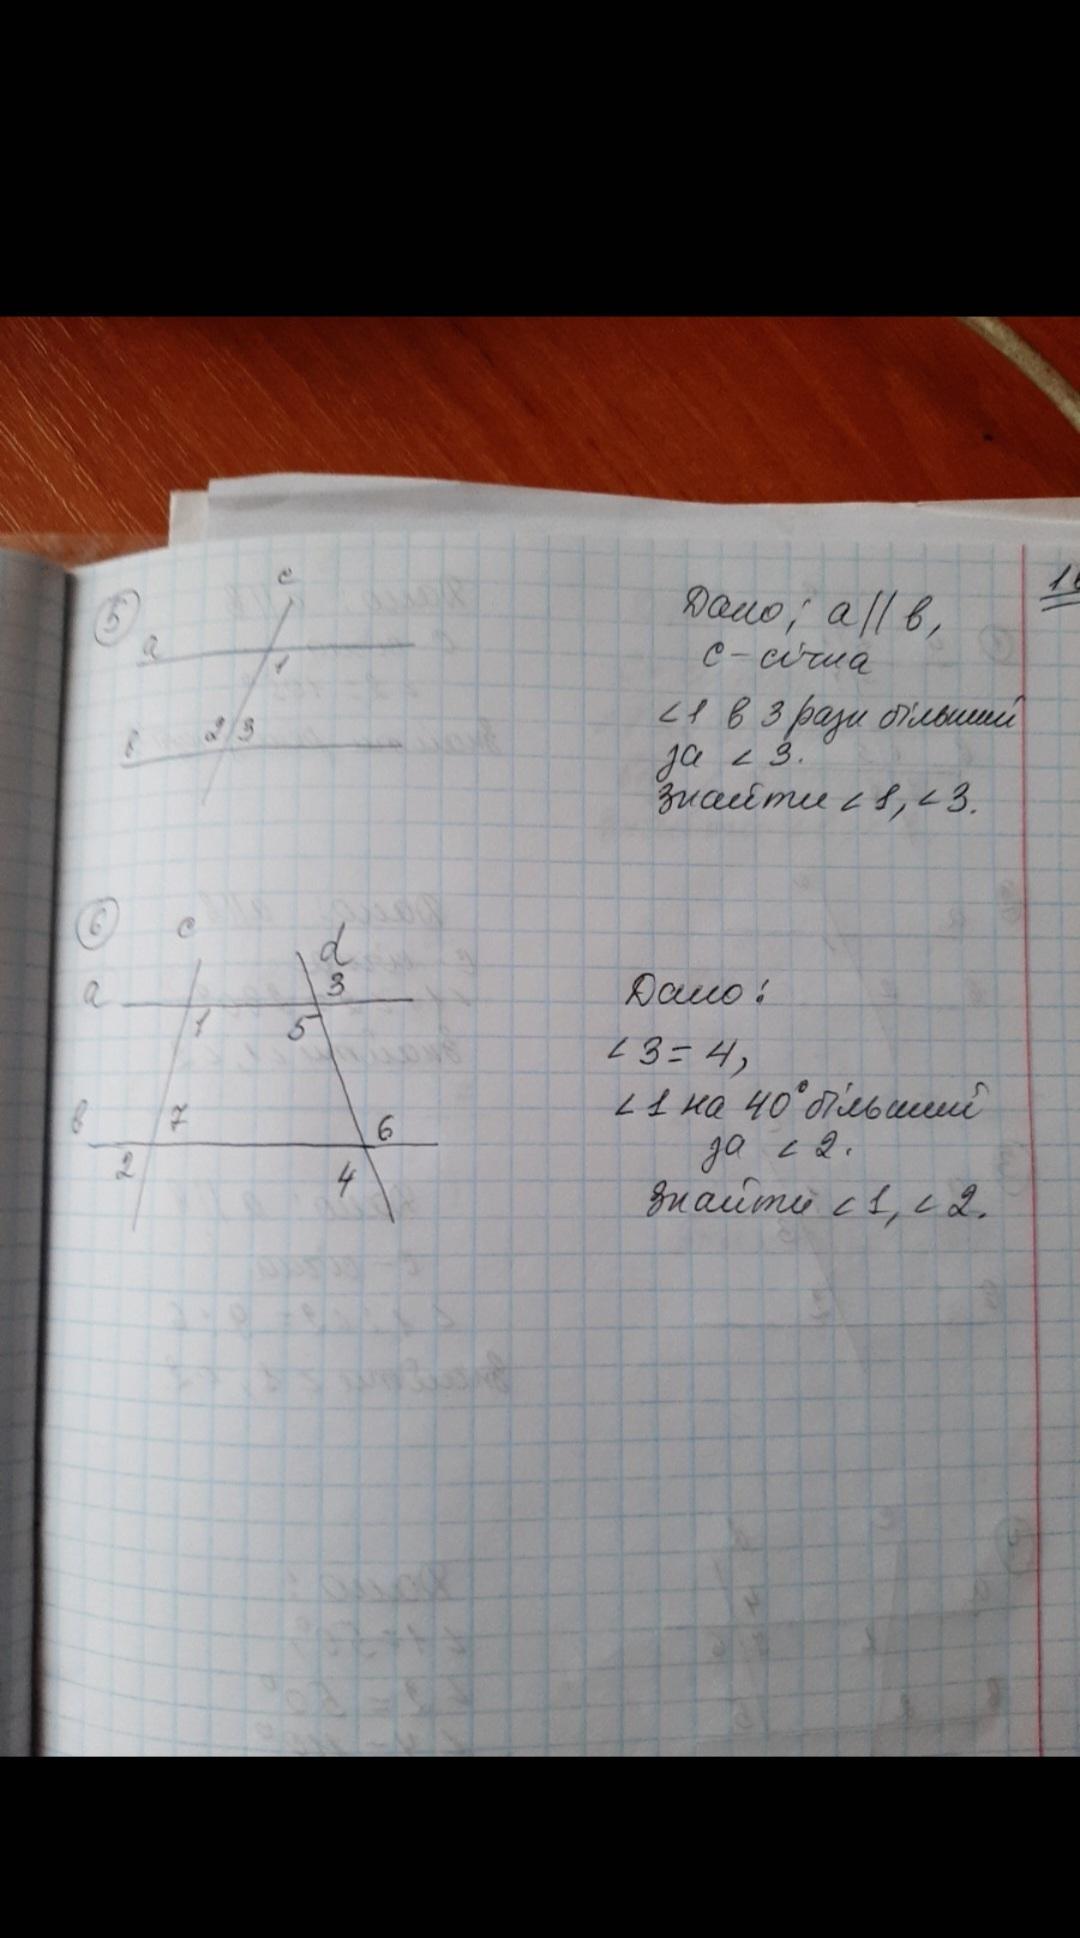 5
c
a
1
2 3
в
Дано: a || в,
c – січна
<1 в 3 рази більший
за < 3.
Знайти < 1, < 3.
16
6
c
d
a
3
1
5
в
7
6
2
4
Дано:
< 3 = 4,
< 1 на 40° більший
за < 2.
Знайти < 1, < 2.